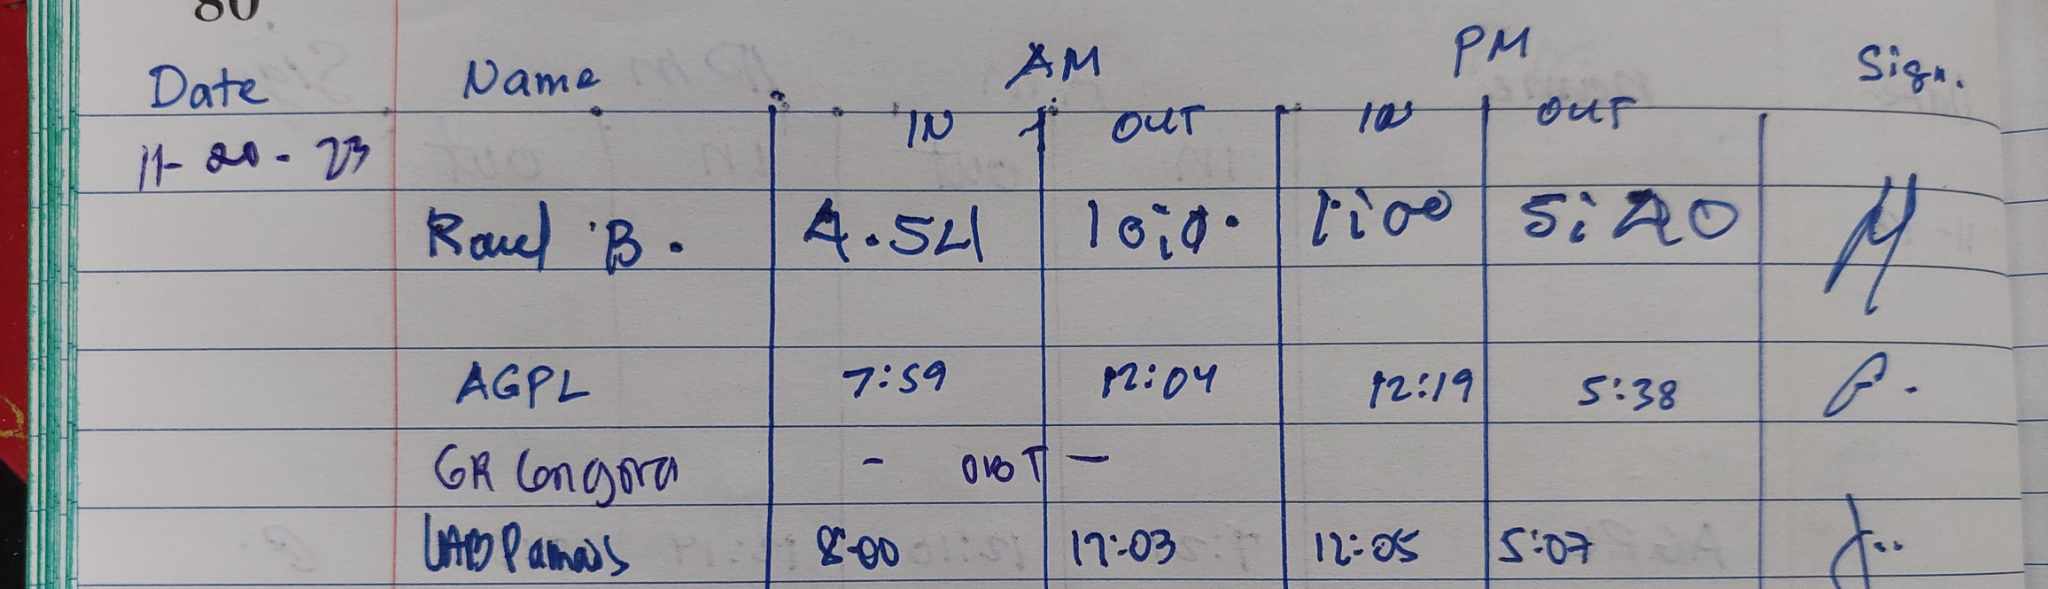 80
Date Name AM PM Sign.
IN OUT IN OUT
11-20-23
Raul B. 4.54 10:0. 1:00 5:20
AGPL 7:59 12:04 12:19 5:38
GR Gongora - OBT -
8:00 12:03 12:05 5:07